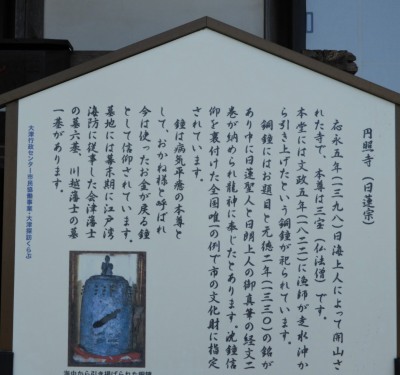 円照寺（日蓮宗）
応永五年（一三九八）日海上人によって開山さ
れた寺で、本尊は三宝（仏法僧）です。
本堂には文政五年（一八二二）に漁師が走水沖か
ら引き上げたという銅鐘が祀られています。
銅鐘にはお題目と元徳二年（一三三〇）の銘が
あり中に日蓮聖人と日朗上人の御真筆の経文二
巻が納められ龍神に奉じたとあります。沈鐘信
仰を裏付けた全国唯一の例で市の文化財に指定
されています。
鐘は病気平癒の本尊と
して、おかね様と呼ばれ
今は使ったお金が戻る鐘
として信仰されています。
墓地には幕末期に江戸湾
海防に従事した会津藩士
の墓六基、川越藩士の墓
一基があります。
大津行政センター市民協働事業・大津探訪くらぶ
海中から引き揚げられた銅鐘